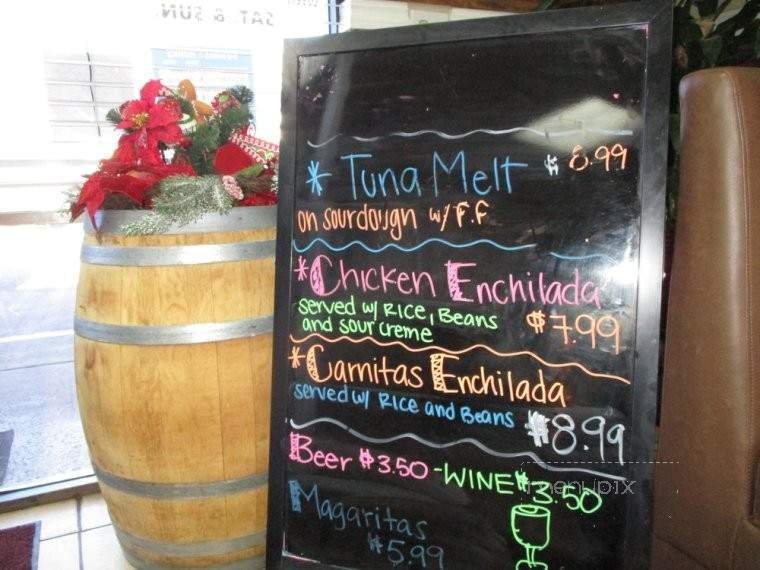 SAT & SUN
* Tuna Melt $ 8.99
on sourdough w/ F.F
*Chicken Enchilada
served w/ Rice, Beans
and sour creme $7.99
*Carnitas Enchilada
served w/ Rice and Beans $8.99
Beer $3.50 - WINE $3.50
Magaritas
$5.99
menupix